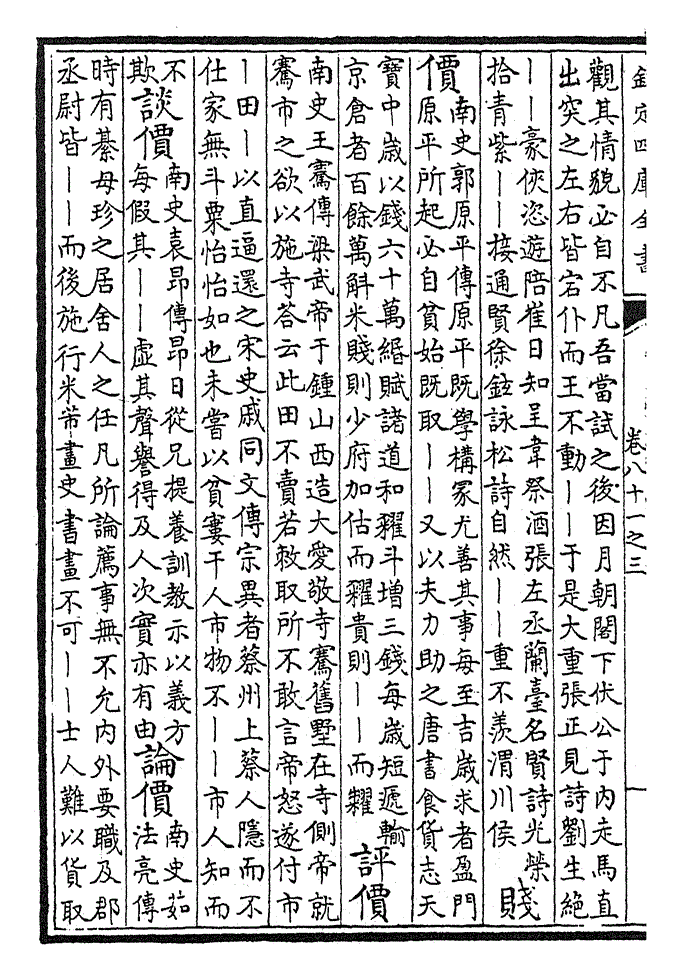 欽定四庫全書
卷八十一之三
觀其情貌必自不凡吾當試之後因月朝閣下伏公于内走馬直
出突之左右皆宕仆而王不動——于是大重張正見詩劉生絶
——豪俠恣遊陪崔日知呈韋祭酒張左丞蘭臺名賢詩光榮
拾青紫——接通賢徐鉉詠松詩自然——重不羨渭川侯
賤
價
南史郭原平傳原平既學構冢尤善其事每至吉歲求者盈門
原平所起必自貧始既取——又以夫力助之唐書食貨志天
寶中歲以錢六十萬緡賦諸道和糴斗增三錢每歲短遞輸
京倉者百餘萬斛米賤則少府加估而糴貴則——而糶
評價
南史王騫傳梁武帝于鍾山西造大愛敬寺騫舊墅在寺側帝就
騫市之欲以施寺荅云此田不賣若敕取所不敢言帝怒遂付市
—田—以直逼還之宋史戚同文傳宗異者蔡州上蔡人隱而不
仕家無斗粟怡怡如也未嘗以貧窶干人市物不——市人知而
不
欺
談價
南史袁昂傳昂曰從兄提養訓教示以義方
每假其——虛其聲譽得及人次實亦有由
論價
南史茹
法亮傳
時有綦毋珍之居舍人之任凡所論薦事無不允内外要職及郡
丞尉皆——而後施行米芾畫史書畫不可——士人難以貨取